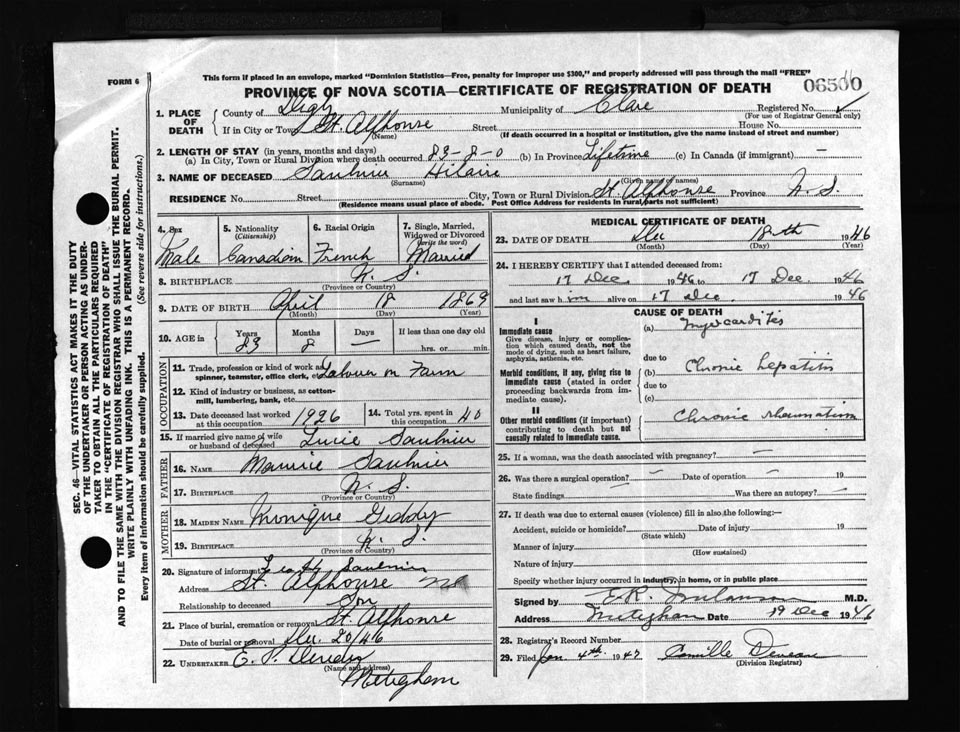 FORM 6
This form if placed in an envelope, marked "Dominion Statistics—Free, penalty for improper use $300," and properly addressed will pass through the mail "FREE"
PROVINCE OF NOVA SCOTIA—CERTIFICATE OF REGISTRATION OF DEATH
1. PLACE OF DEATH
County of Digby Municipality of Clare Registered No.
(For use of Registrar General only)
If in City or Town St. Alphonse Street House No.
(Name) (If death occurred in a hospital or institution, give the name instead of street and number)
2. LENGTH OF STAY (in years, months and days)
(a) In City, Town or Rural Division where death occurred 83-8-0 (b) In Province Lifetime (c) In Canada (if immigrant) —
3. NAME OF DECEASED Saulnier Hilaire
(Surname) (Given name or names)
RESIDENCE No. Street City, Town or Rural Division St. Alphonse Province N.S.
(Residence means usual place of abode. Post Office Address for residents in rural parts not sufficient)
4. Sex
Male
5. Nationality (Citizenship)
Canadian
6. Racial Origin
French
7. Single, Married, Widowed or Divorced (write the word)
Married
8. BIRTHPLACE N.S.
(Province or Country)
9. DATE OF BIRTH April 18 1863
(Month) (Day) (Year)
10. AGE in Years Months Days If less than one day old
83 8 — hrs. or min.
OCCUPATION
11. Trade, profession or kind of work as spinner, teamster, office clerk, etc. Labour on Farm
12. Kind of industry or business, as cotton-mill, lumbering, bank, etc.
13. Date deceased last worked at this occupation 1926
14. Total yrs. spent in this occupation 40
15. If married give name of wife or husband of deceased Saulnier
FATHER
16. NAME Maurice Saulnier
17. BIRTHPLACE N.S.
(Province or Country)
MOTHER
18. MAIDEN NAME Monique Geddry
19. BIRTHPLACE N.S.
(Province or Country)
20. Signature of informant Saulnier
Address St. Alphonse
Relationship to deceased Son
21. Place of burial, cremation or removal St. Alphonse
Date of burial or removal Dec. 20/46
22. UNDERTAKER
(Name and address)
Meteghan
MEDICAL CERTIFICATE OF DEATH
23. DATE OF DEATH Dec 18th 1946
(Month) (Day) (Year)
24. I HEREBY CERTIFY that I attended deceased from:
17 Dec 1946 to 17 Dec. 1946
and last saw him alive on 17 Dec. 1946
CAUSE OF DEATH
I
Immediate cause
Give disease, injury or complication which caused death, not the mode of dying, such as heart failure, asphyxia, asthenia, etc.
(a) Myocarditis
due to
Morbid conditions, if any, giving rise to immediate cause (stated in order proceeding backwards from immediate cause).
(b) Chronic hepatitis
due to
(c)
II
Other morbid conditions (if important) contributing to death but not causally related to immediate cause.
Chronic rheumatism
25. If a woman, was the death associated with pregnancy? —
26. Was there a surgical operation? — Date of operation — 19
State findings Was there an autopsy? —
27. If death was due to external causes (violence) fill in also the following:—
Accident, suicide or homicide? Date of injury 19
(State which)
Manner of injury
(How sustained)
Nature of injury
Specify whether injury occurred in industry, in home, or in public place
Signed by E.R. M.D.
Address Meteghan Date 19 Dec 1946
28. Registrar's Record Number
29. Filed Jan. 4th 1947 Camille Deveau
(Division Registrar)
SEC. 46—VITAL STATISTICS ACT MAKES IT THE DUTY
OF THE UNDERTAKER OR PERSON ACTING AS UNDER-
TAKER TO OBTAIN ALL THE PARTICULARS REQUIRED
IN THE "CERTIFICATE OF REGISTRATION OF DEATH"
AND TO FILE THE SAME WITH THE DIVISION REGISTRAR WHO SHALL ISSUE THE BURIAL PERMIT.
WRITE PLAINLY WITH UNFADING INK. THIS IS A PERMANENT RECORD.
Every item of information should be carefully supplied. (See reverse side for instructions.)